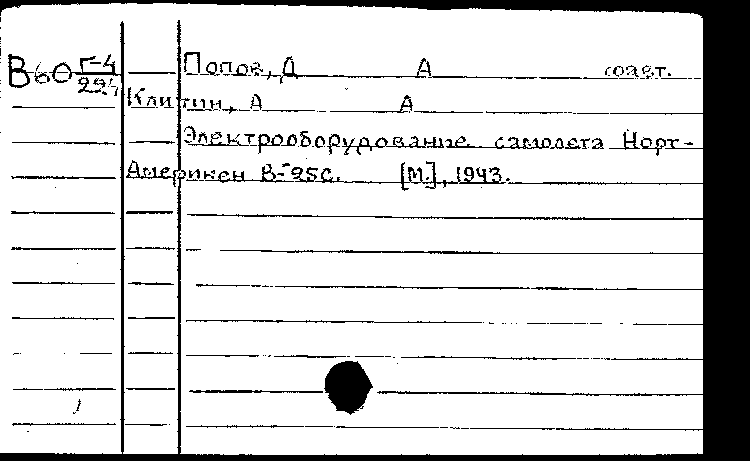 В60 Г-4 Попов, Д А соавт.
Клитин, А А
Электрооборудование самолета Норт-
Америкен В-25С. [М.], 1943.